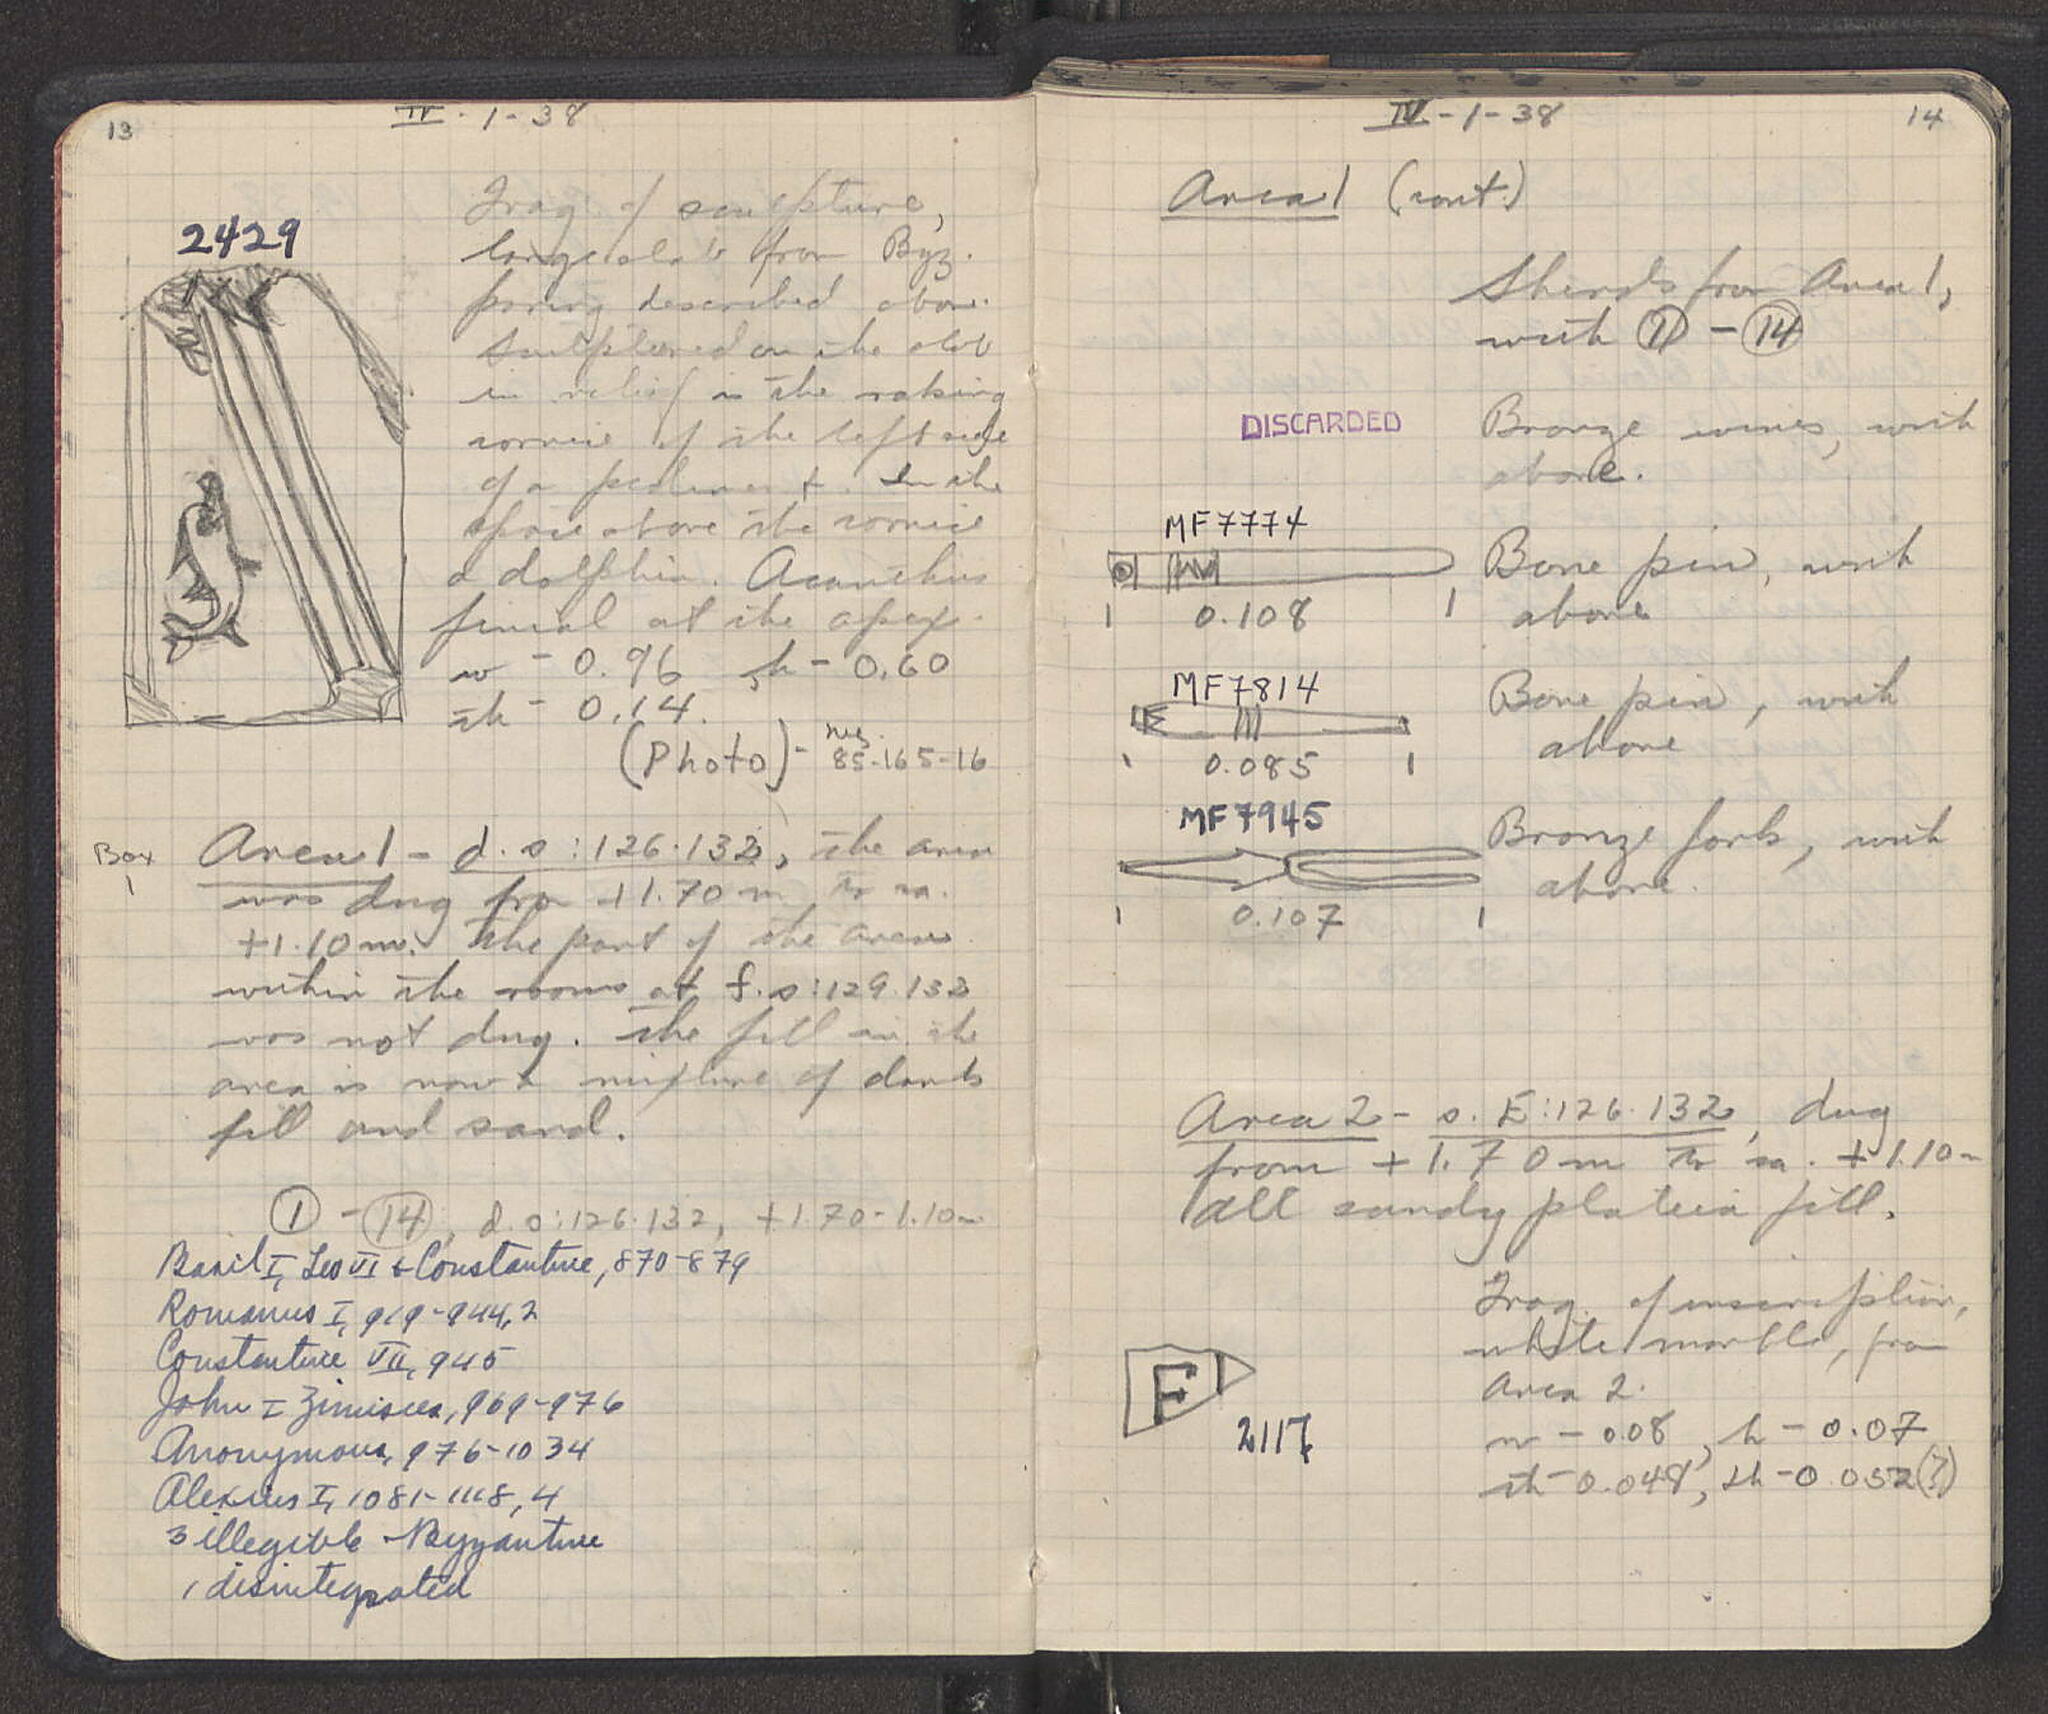 13
IV-1-38
2429
Frag. of sculpture,
large slab from Byz.
paving described above.
Sculptured on the slab
in relief is the raking
cornice of the left side
of a pediment. In the
space above the cornice
a dolphin. Acanthus
finial at the apex.
w - 0.96, h - 0.60
th - 0.14.
(Photo) - neg. 85-165-16
Box 1
Area 1 - d.s:126.132, the area
was dug fro +1.70m to ca.
+1.10m. The part of the area
within the rooms at f.s:129.132
was not dug. The fill in the
area is now a mixture of dark
fill and sand.
① - ⑭, d.s:126.132, +1.70-1.10m
Basil I, Leo VI & Constantine, 870-879
Romanus I, 919-944, 2
Constantine VII, 945
John I Zimisces, 969-976
Anonymous, 976-1034
Alexius I, 1081-1118, 4
3 illegible - Byzantine
1 disintegrated
IV-1-38
14
Area 1 (cont.)
Sherds from Area 1,
with ① - ⑭
DISCARDED
Bronze wires, with
above.
MF7774
Bone pin, with
above
0.108
MF7814
Bone pin, with
above
0.085
MF7945
Bronze fork, with
above.
0.107
Area 2 - s.E:126.132, dug
from +1.70m to ca. +1.10m
all sandy plateia fill.
Frag. of inscription,
white marble, from
Area 2.
E
2117
w - 0.08, h - 0.07
th - 0.048, lh - 0.032(?)